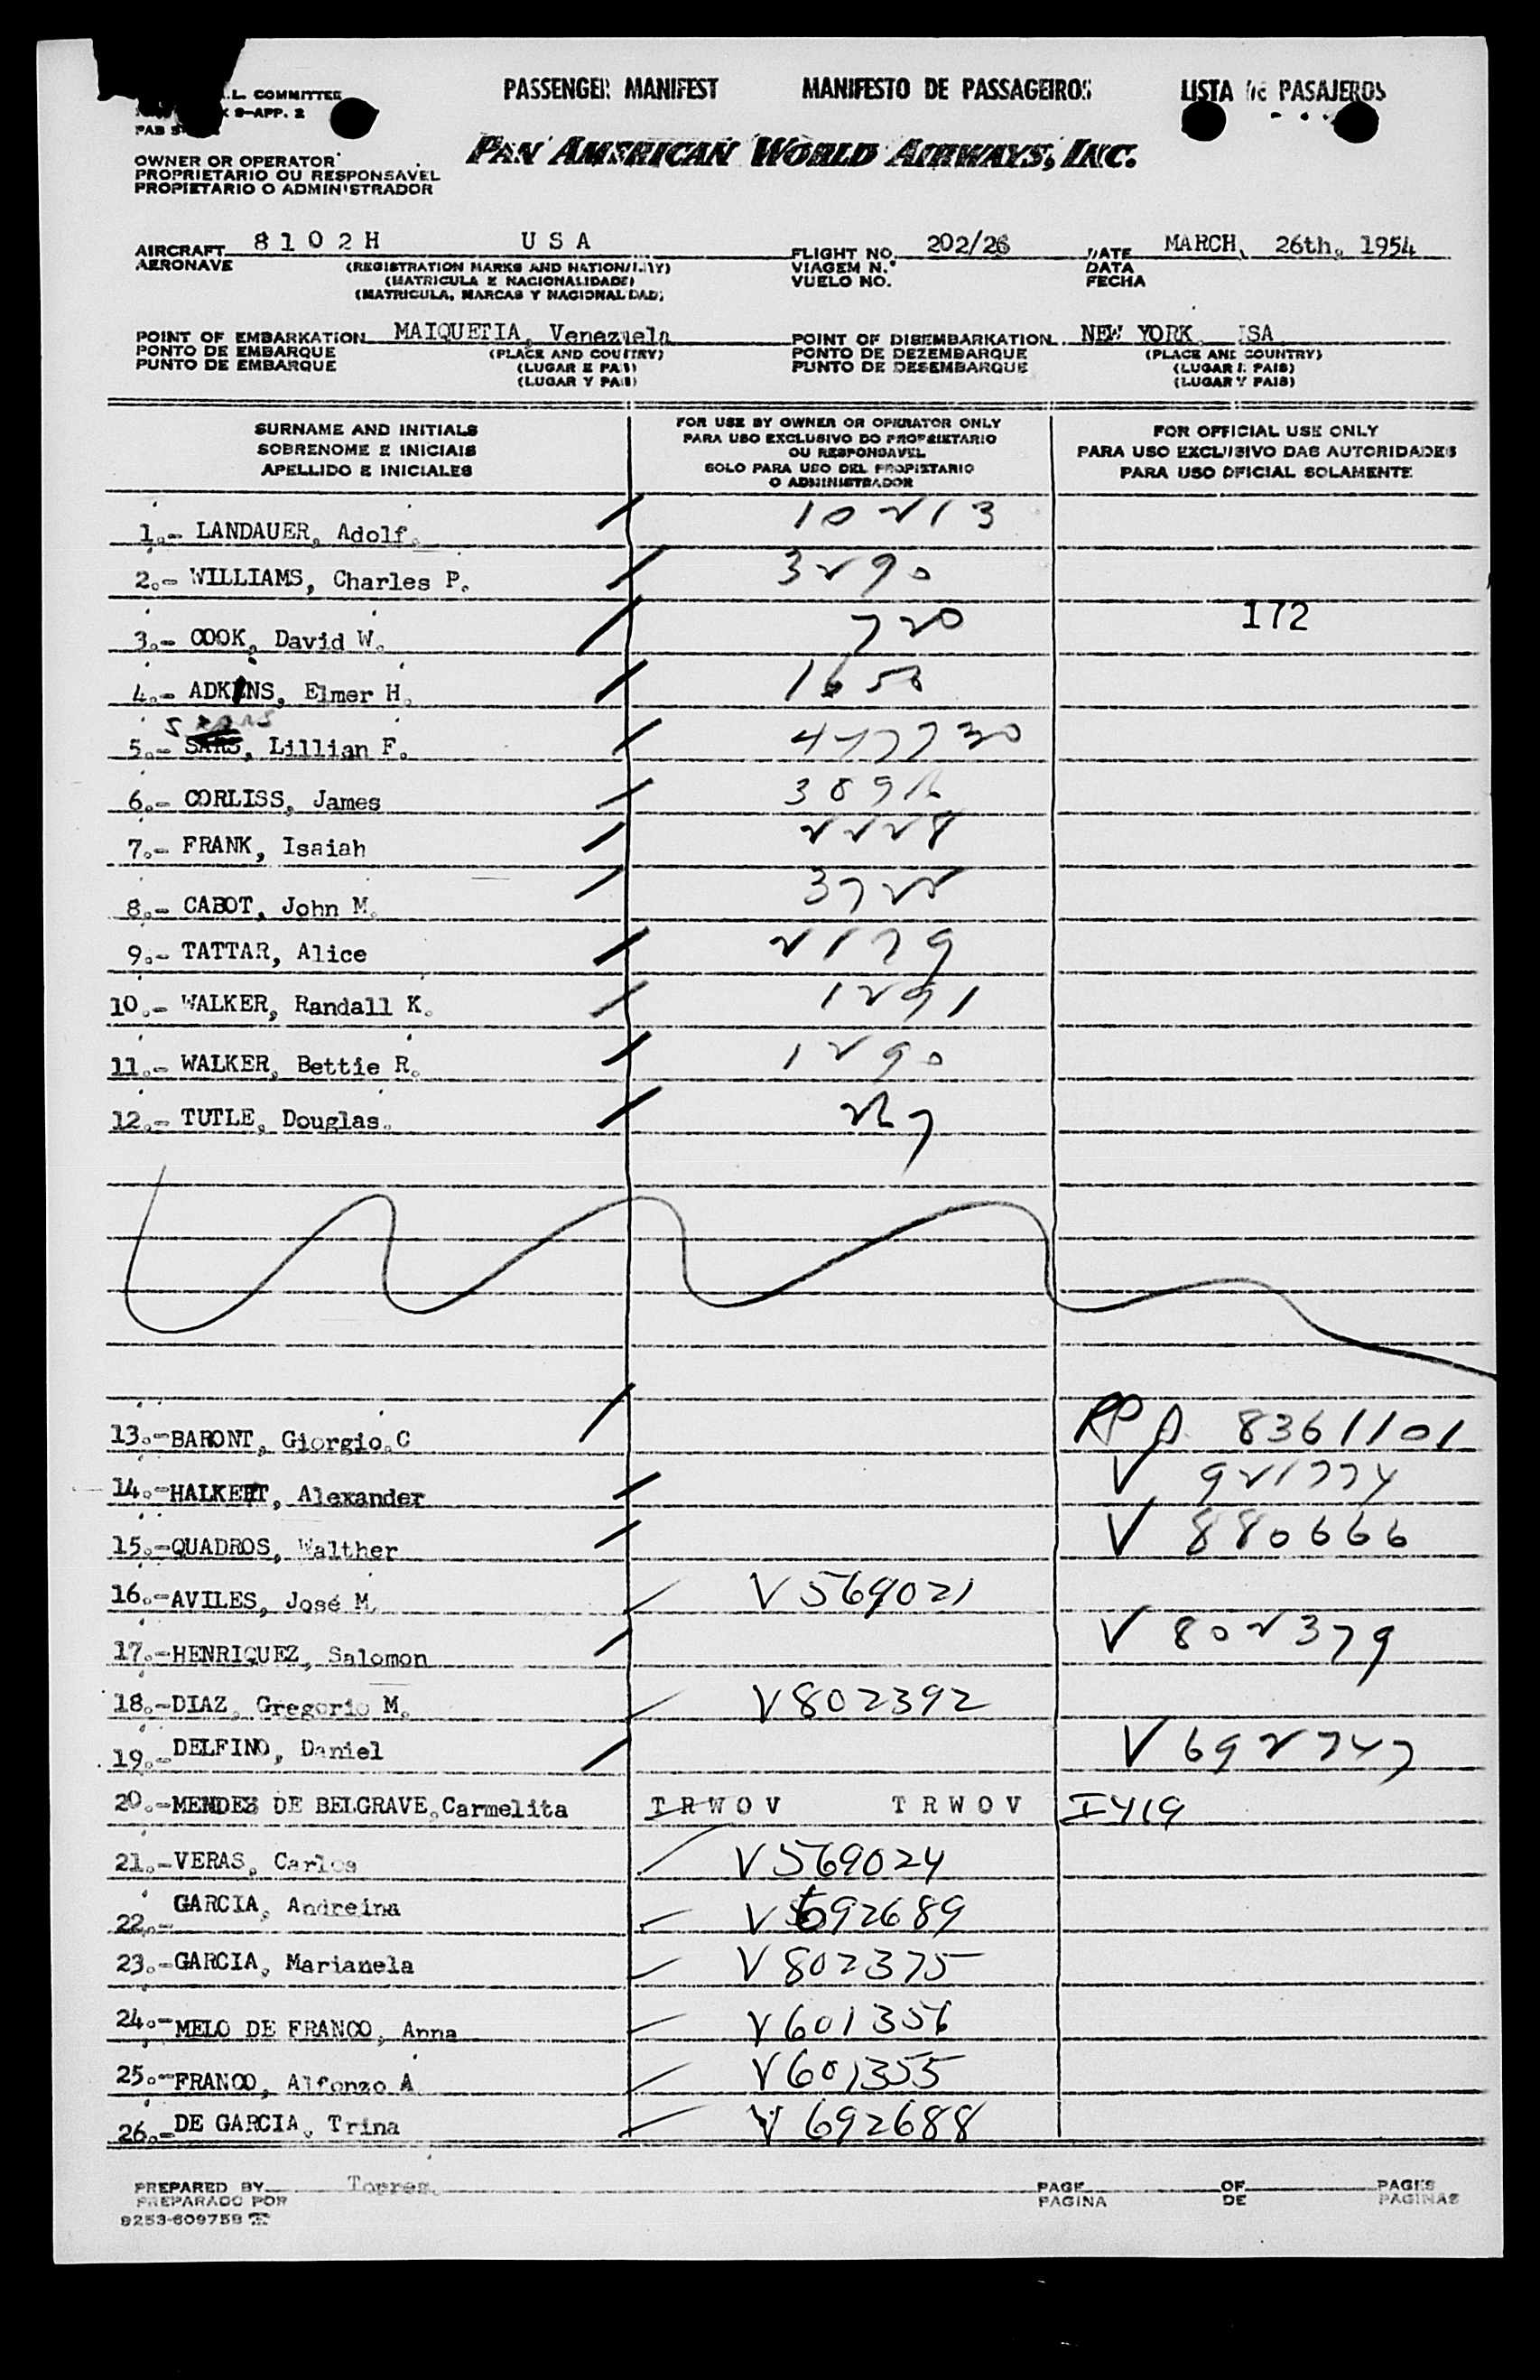 L. COMMITTEE
9-APP. 2
PASSENGER MANIFEST MANIFESTO DE PASSAGEIROS LISTA DE PASAJEROS
PAN AMERICAN WORLD AIRWAYS, INC.
OWNER OR OPERATOR
PROPRIETARIO OU RESPONSAVEL
PROPIETARIO O ADMINISTRADOR
AIRCRAFT 8102H USA FLIGHT NO. 202/26 DATE MARCH, 26th, 1954
AERONAVE (REGISTRATION MARKS AND NATIONALITY) VIAGEM N.° DATA
(MATRICULA E NACIONALIDADE) VUELO NO. FECHA
(MATRICULA, MARCAS Y NACIONALIDAD)
POINT OF EMBARKATION MAIQUETIA, Venezuela POINT OF DISEMBARKATION NEW YORK USA
PONTO DE EMBARQUE (PLACE AND COUNTRY) PONTO DE DEZEMBARQUE (PLACE AND COUNTRY)
PUNTO DE EMBARQUE (LUGAR E PAIS) PUNTO DE DESEMBARQUE (LUGAR E PAIS)
(LUGAR Y PAIS) (LUGAR Y PAIS)
SURNAME AND INITIALS
SOBRENOME E INICIAIS
APELLIDO E INICIALES
FOR USE BY OWNER OR OPERATOR ONLY
PARA USO EXCLUSIVO DO PROPRIETARIO
OU RESPONSAVEL
SOLO PARA USO DEL PROPIETARIO
O ADMINISTRADOR
FOR OFFICIAL USE ONLY
PARA USO EXCLUSIVO DAS AUTORIDADES
PARA USO OFICIAL SOLAMENTE
1.- LANDAUER, Adolf. 10213
2.- WILLIAMS, Charles P. 3290
3.- COOK, David W. 720 I72
4.- ADKINS, Elmer H. 1658
5.- SARS, Lillian F. 427730
6.- CORLISS, James 3896
7.- FRANK, Isaiah 2228
8.- CABOT, John M. 3722
9.- TATTAR, Alice 2179
10.- WALKER, Randall K. 1291
11.- WALKER, Bettie R. 1290
12.- TUTLE, Douglas. 267
13.- BARONT, Giorgio.C RP A 8361101
14.- HALKETT, Alexander V 921774
15.- QUADROS, Walther V 880666
16.- AVILES, José M. V569021
17.- HENRIQUEZ, Salomon V 802379
18.- DIAZ, Gregorio M. V802392
19.- DELFINO, Daniel V 692747
20.- MENDEZ DE BELGRAVE, Carmelita TRWOV TRWOV I419
21.- VERAS, Carlos V569024
22.- GARCIA, Andreina V 692689
23.- GARCIA, Marianela V 802375
24.- MELO DE FRANCO, Anna V601356
25.- FRANCO, Alfonzo A V601355
26.- DE GARCIA, Trina V 692688
PREPARED BY Torres. PAGE OF PAGES
PREPARADO POR PAGINA DE PAGINAS
9253-609758